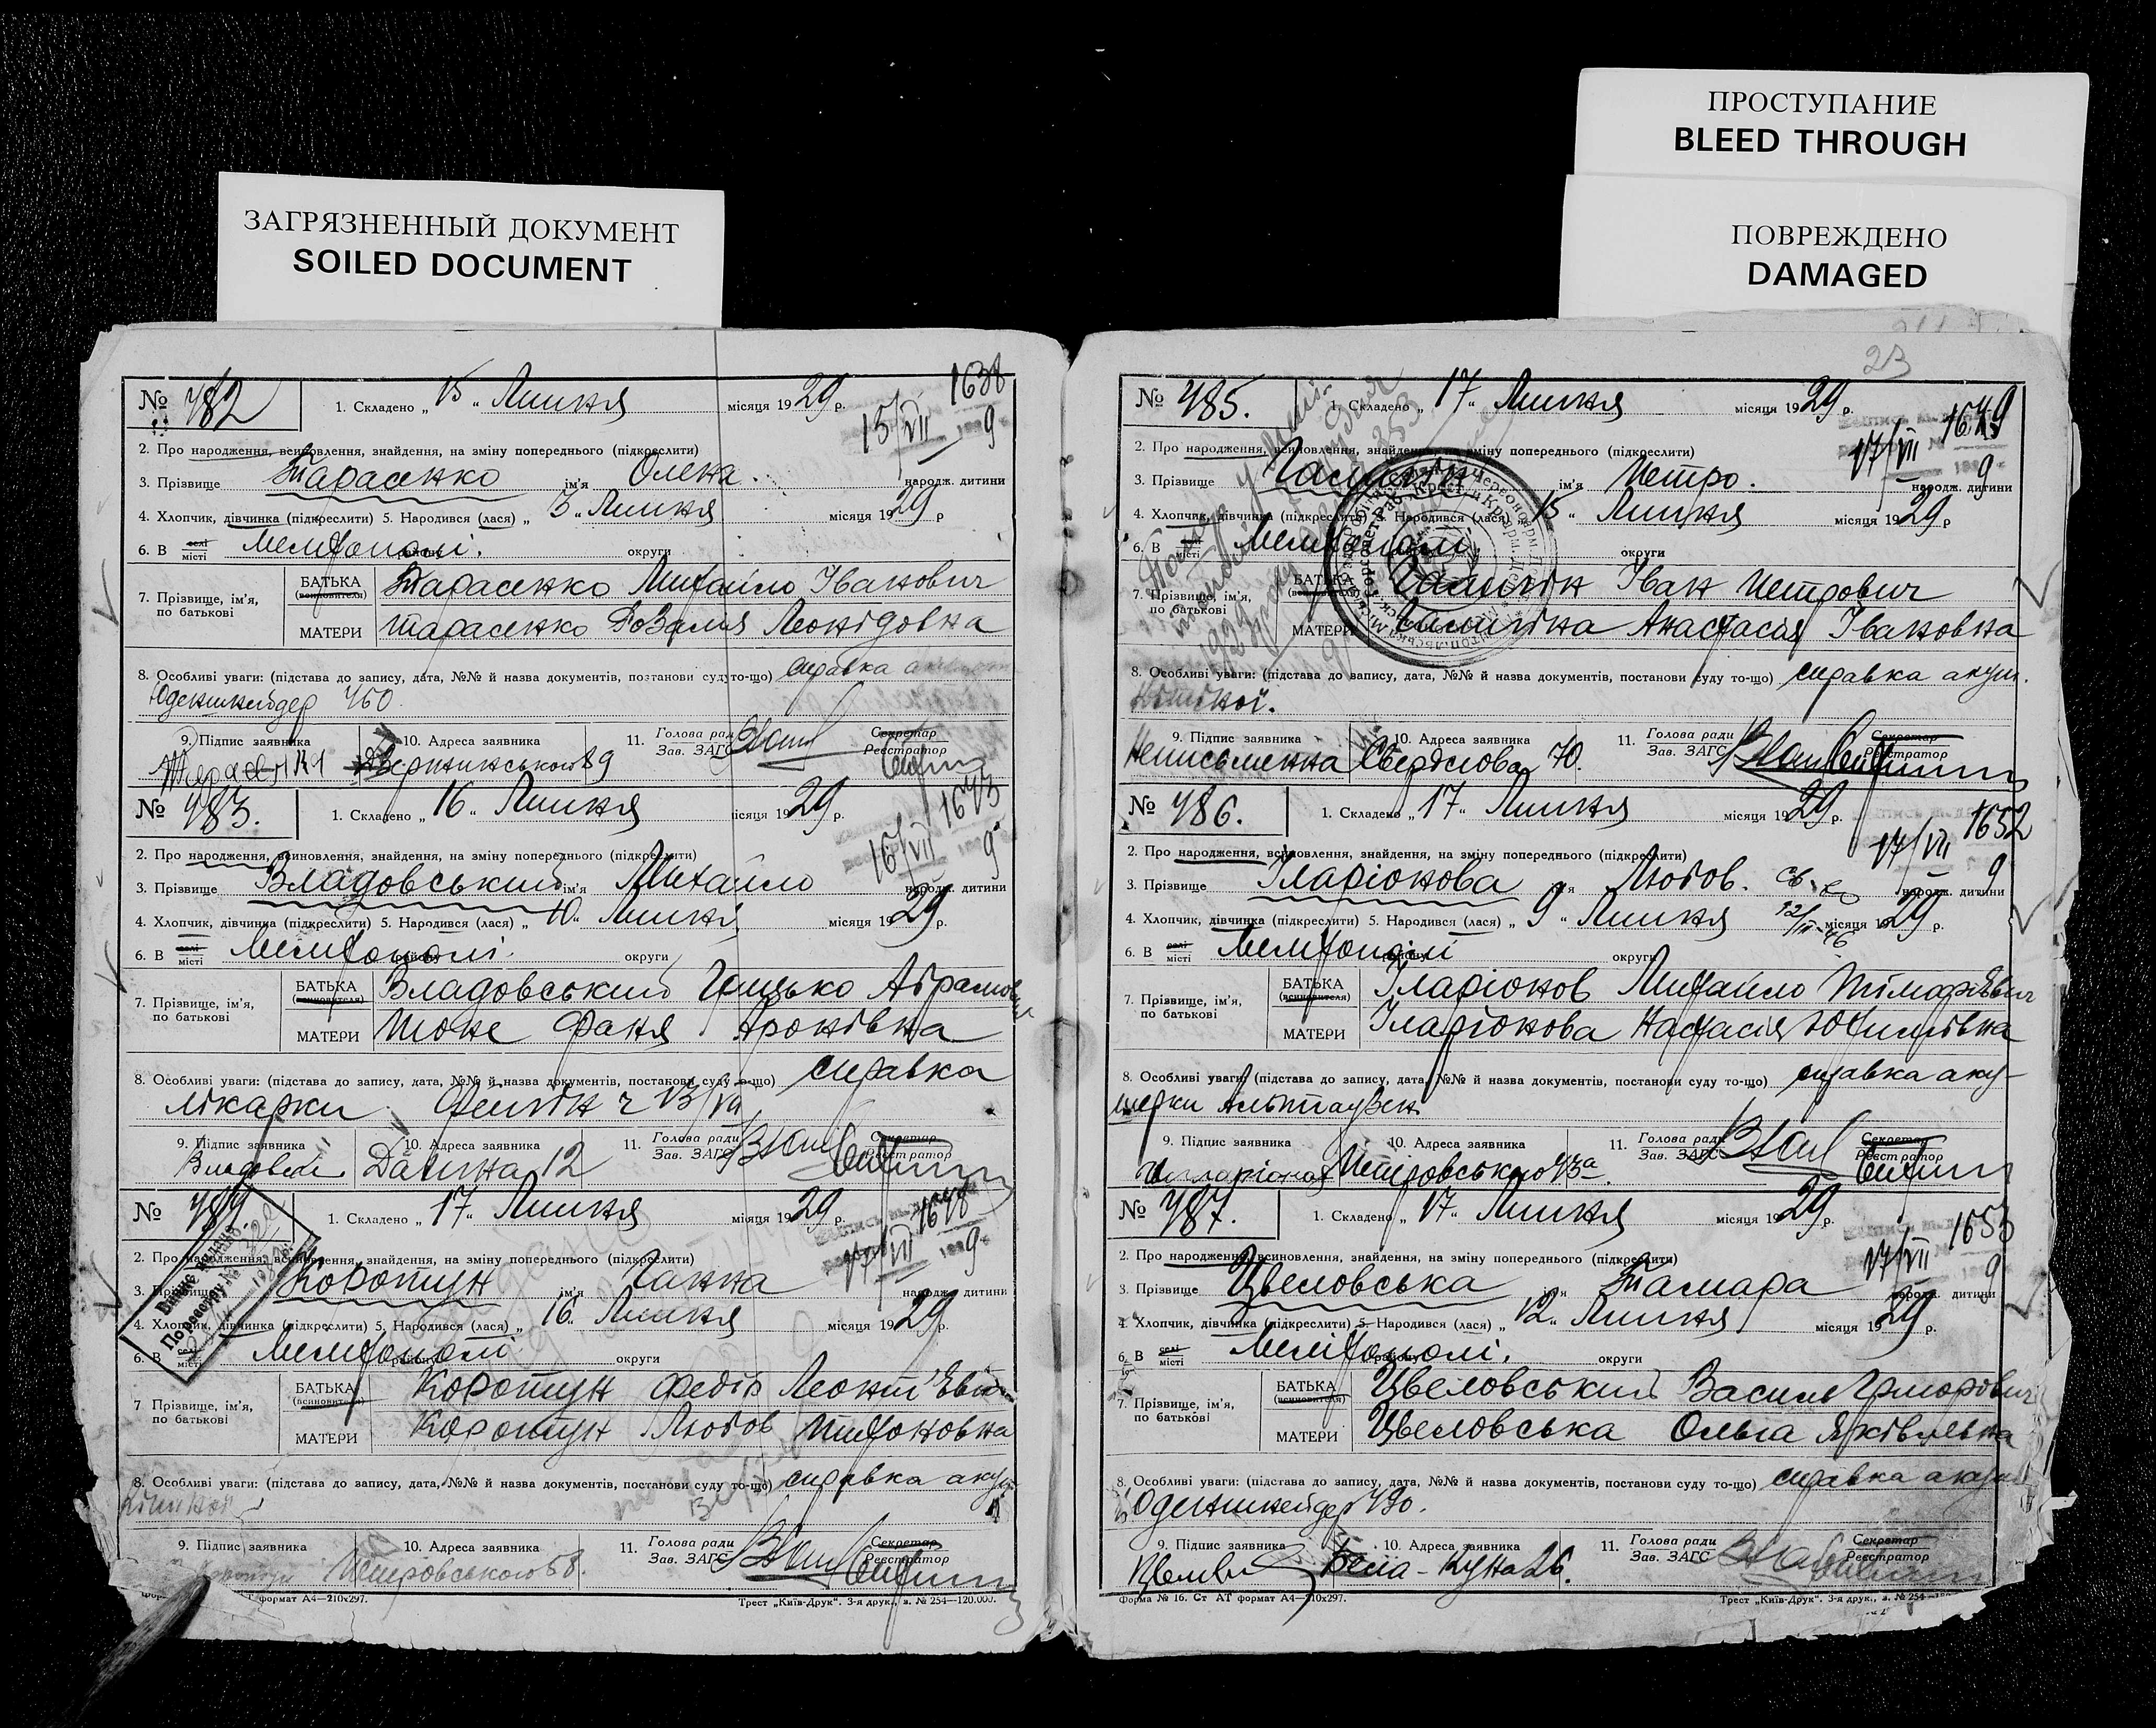 ПРОСТУПАНИЕ
BLEED THROUGH
ПОВРЕЖДЕНО
DAMAGED
ЗАГРЯЗНЕННЫЙ ДОКУМЕНТ
SOILED DOCUMENT
№ 482
1. Складено „ 15 “ Липня місяця 1929 р.
1638
15/VII 9
2. Про народження, всиновлення, знайдення, на зміну попереднього (підкреслити)
3. Прізвище Тарасенко ім'я Олена. народж. дитини
4. Хлопчик, дівчинка (підкреслити) 5. Народився (лася) „ 3 “ Липня місяця 1929 р
6. В селі місті Мелітополі. району округи
7. Прізвище, ім'я, по батькові
БАТЬКА (всиновителя) Тарасенко Михайло Іванович
МАТЕРИ Тарасенко Розалия Леонідовна
8. Особливі уваги: (підстава до запису, дата, №№ й назва документів, постанови суду то-що) справка
450
9. Підпис заявника 10. Адреса заявника 11. Голова ради Зав. ЗАГС Секретар Реєстратор
Дзержинського 89
№ 483.
1. Складено „ 16 “ Липня місяця 1929 р.
1643
16/VII 9
2. Про народження, всиновлення, знайдення, на зміну попереднього (підкреслити)
3. Прізвище Владовський ім'я Михайло народж. дитини
4. Хлопчик, дівчинка (підкреслити) 5. Народився (лася) „ 10 “ Липня місяця 1929 р.
6. В селі місті Мелітополі. району округи
7. Прізвище, ім'я, по батькові
БАТЬКА (всиновителя) Владовський Грицько Абрамович
МАТЕРИ Фаня Аронівна
8. Особливі уваги: (підстава до запису, дата, №№ й назва документів, постанови суду то-що) справка
лікарки
9. Підпис заявника 10. Адреса заявника 11. Голова ради Зав. ЗАГС Секретар Реєстратор
12
№ 484.
1. Складено „ 17 “ Липня місяця 1929 р.
1648
17/VII 9
2. Про народження, всиновлення, знайдення, на зміну попереднього (підкреслити)
3. Прізвище Коротун ім'я Ганна народж. дитини
4. Хлопчик, дівчинка (підкреслити) 5. Народився (лася) „ 16 “ Липня місяця 1929 р.
6. В селі місті Мелітополі району округи
7. Прізвище, ім'я, по батькові
БАТЬКА (всиновителя) Коротун Федір
МАТЕРИ Коротун Любов Тихоновна
8. Особливі уваги: (підстава до запису, дата, №№ й назва документів, постанови суду то-що) справка
9. Підпис заявника 10. Адреса заявника 11. Голова ради Зав. ЗАГС Секретар Реєстратор
Петровського 58.
формат А4—210х297. Трест „Київ-Друк“. 3-я друк., з. № 254—120.000.
23
№ 485.
1. Складено „ 17 “ Липня місяця 1929 р.
1649
17/VII 9
2. Про народження, всиновлення, знайдення, на зміну попереднього (підкреслити)
3. Прізвище ім'я Петро. народж. дитини
4. Хлопчик, дівчинка (підкреслити) 5. Народився (лася) „ 15 “ Липня місяця 1929 р
6. В селі місті Мелітополі округи
7. Прізвище, ім'я, по батькові
БАТЬКА (всиновителя) Іван Петрович
МАТЕРИ Анастасія Івановна
8. Особливі уваги: (підстава до запису, дата, №№ й назва документів, постанови суду то-що) справка акуш.
9. Підпис заявника 10. Адреса заявника 11. Голова ради Зав. ЗАГС Секретар Реєстратор
Неписьменна Свердлова 70.
№ 486.
1. Складено „ 17 “ Липня місяця 1929 р.
1652
17/VII 9
2. Про народження, всиновлення, знайдення, на зміну попереднього (підкреслити)
3. Прізвище Іларіонова ім'я Любов. народж. дитини
4. Хлопчик, дівчинка (підкреслити) 5. Народився (лася) „ 9 “ Липня місяця 1929 р.
6. В селі місті Мелітополі району округи
7. Прізвище, ім'я, по батькові
БАТЬКА (всиновителя) Іларіонов Михайло Тімофієвич
МАТЕРИ Іларіонова Настасія Юхимівна
8. Особливі уваги: (підстава до запису, дата, №№ й назва документів, постанови суду то-що) справка аку-
шерки
9. Підпис заявника 10. Адреса заявника 11. Голова ради Зав. ЗАГС Секретар Реєстратор
Петровського 43а.
№ 487.
1. Складено „ 17 “ Липня місяця 1929 р.
1653
17/VII 9
2. Про народження, всиновлення, знайдення, на зміну попереднього (підкреслити)
3. Прізвище Цвеловська ім'я Тамара народж. дитини
4. Хлопчик, дівчинка (підкреслити) 5. Народився (лася) „ 12 “ Липня місяця 1929 р.
6. В селі місті Мелітополі. району округи
7. Прізвище, ім'я, по батькові
БАТЬКА (всиновителя) Цвеловський Василь Григорович
МАТЕРИ Цвеловська Ольга Яківлевна
8. Особливі уваги: (підстава до запису, дата, №№ й назва документів, постанови суду то-що) справка
9. Підпис заявника 10. Адреса заявника 11. Голова ради Зав. ЗАГС Секретар Реєстратор
Бела-Куна 26.
Форма № 16. Ст АТ формат А4—210х297. Трест „Київ-Друк“. 3-я друк., з. № 254